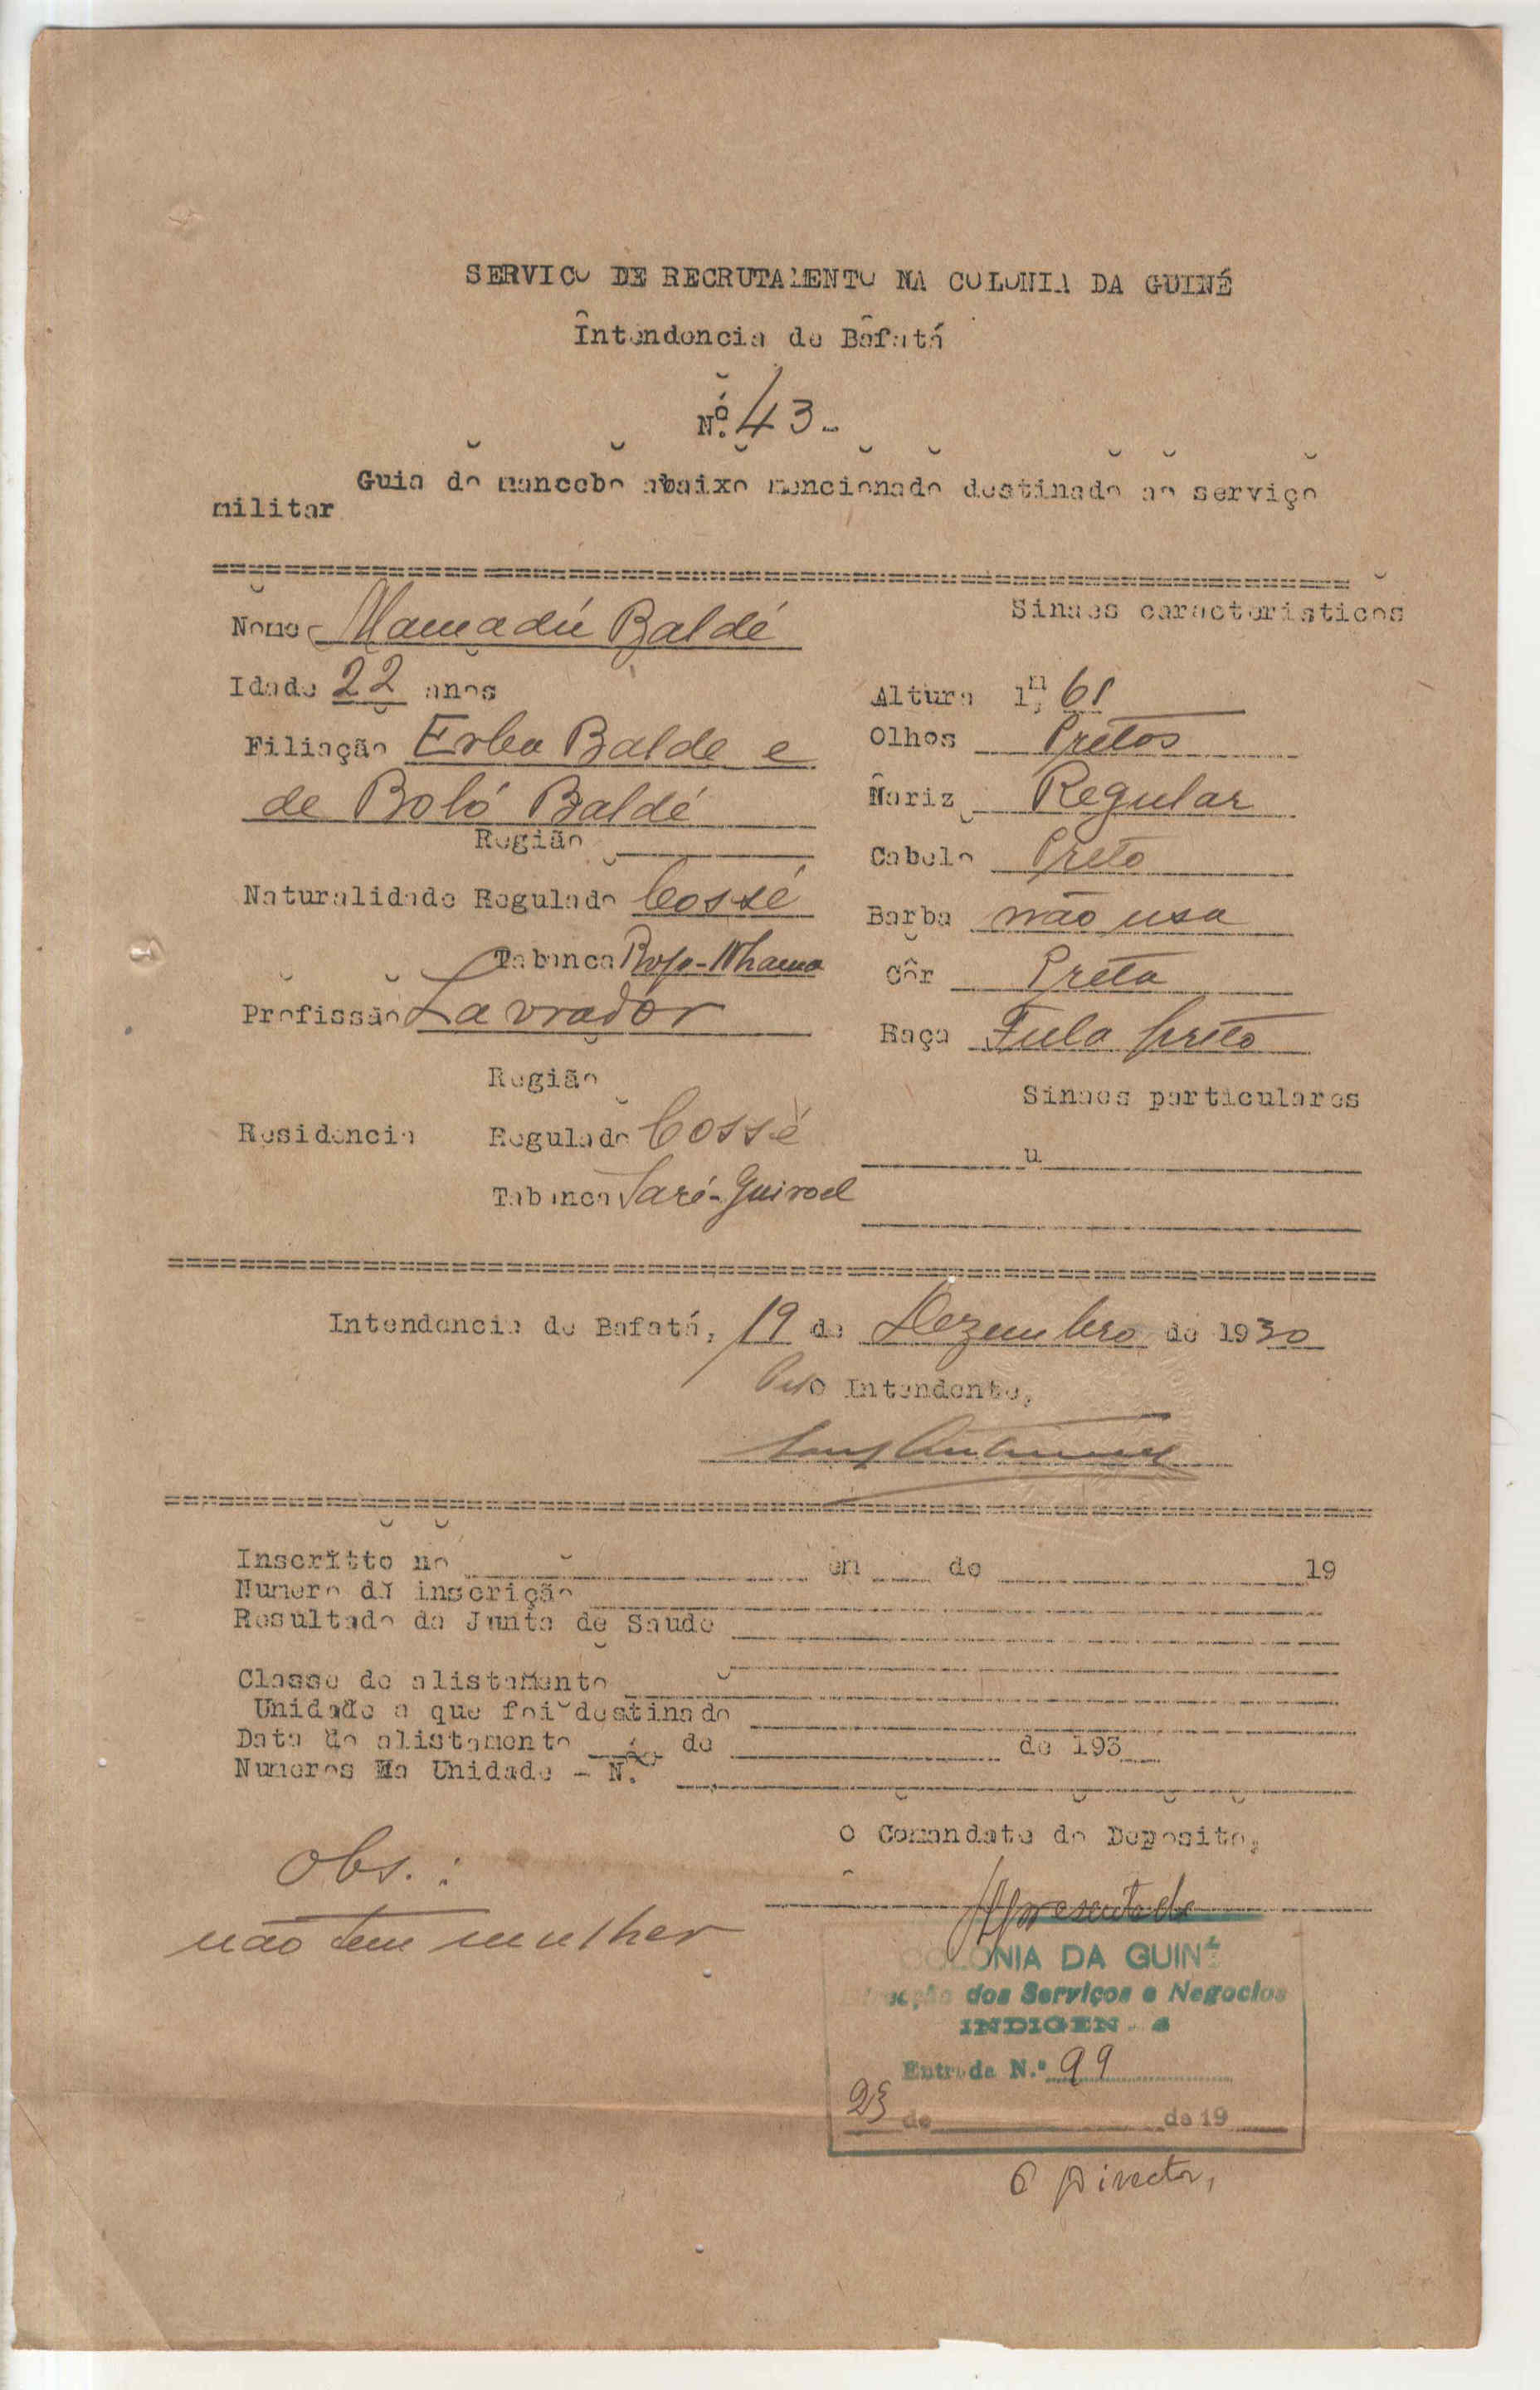 SERVICO DE RECRUTAMENTO NA COLONIA DA GUINÉ
Intendencia de Bafatá
Nº. 43-
Guia do mancebo abaixo mencionado destinado ao serviço
militar
Nome Mamadú Baldé
Idade 22 anos
Filiação Erbo Balde e
de Boló Baldé
Região
Naturalidade Regulado Cossé
Tabanca
Profissão Lavrador
Região
Residencia Regulado Cossé
Tabanca Saré-Guiroel
Sinaes caracteristicos
Altura 1m, 61
Olhos Pretos
Nariz Regular
Cabelo Preto
Barba não usa
Côr Preta
Raça Fula preto
Sinaes particulares
Intendencia de Bafatá, 19 de Dezembro de 1930
Pelo Intendente,
Inscritto no em de 19
Numero da inscrição
Resultado da Junta de Saude
Classe de alistamento
Unidade a que foi destinado
Data do alistamento de de 193
Numeros Na Unidade - N.
O Comandate do Deposito,
Obs.:
não tem mulher
Apresentado
COLONIA DA GUINÉ
dos Serviços e Negocios
INDIGENAS
Entrada N.º 99
23 de de 19
O Director,